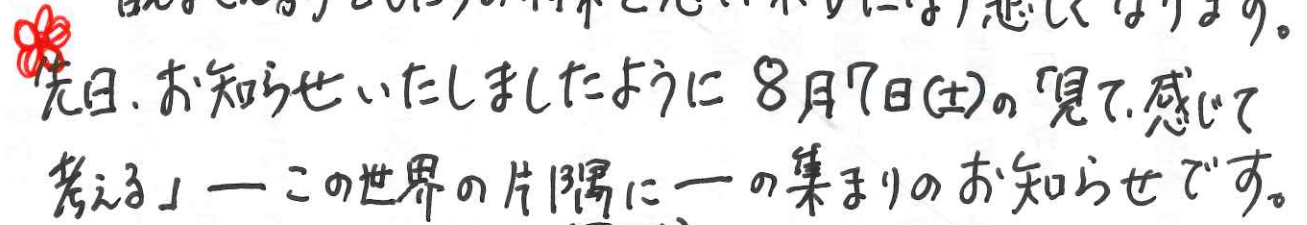 なります。
先日、お知らせいたしましたように8月7日(土)の「見て、感じて
考える」―この世界の片隅に―の集まりのお知らせです。